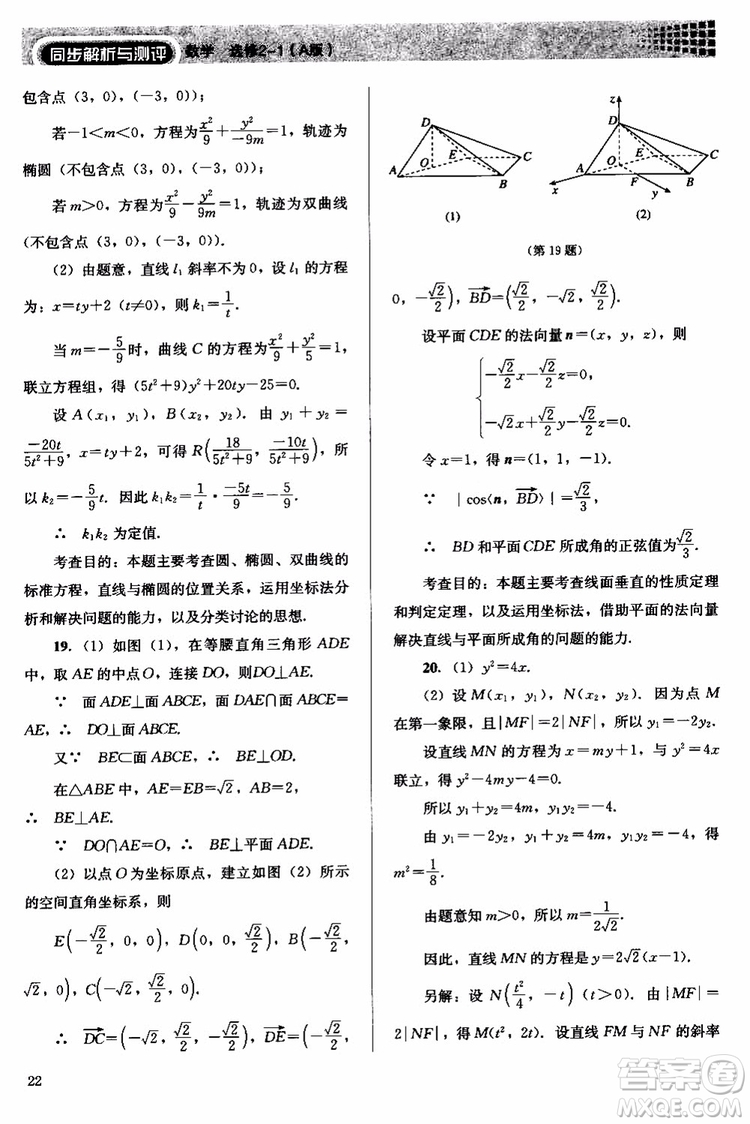 同步解析与测评 数学 选修2-1（A版）
包含点（3，0），（-3，0））；
若-1<m<0，方程为x²/9+y²/(-9m)=1，轨迹为
椭圆（不包含点（3，0），（-3，0））；
若m>0，方程为x²/9-y²/(9m)=1，轨迹为双曲线
（不包含点（3，0），（-3，0））.
（2）由题意，直线l₁斜率不为0，设l₁的方程
为：x=ty+2（t≠0），则k₁=1/t.
当m=-5/9时，曲线C的方程为x²/9+y²/5=1，
联立方程组，得（5t²+9）y²+20ty-25=0.
设A（x₁，y₁），B（x₂，y₂）. 由y₁+y₂=
-20t/(5t²+9)，x=ty+2，可得R(18/(5t²+9)，-10t/(5t²+9))，所
以k₂=-5/9 t. 因此k₁k₂=1/t·-5t/9=-5/9.
∴ k₁k₂为定值.
考查目的：本题主要考查圆、椭圆、双曲线的
标准方程，直线与椭圆的位置关系，运用坐标法分
析和解决问题的能力，以及分类讨论的思想.
19.（1）如图（1），在等腰直角三角形ADE
中，取AE的中点O，连接DO，则DO⊥AE.
∵ 面ADE⊥面ABCE，面DAE∩面ABCE=
AE，∴ DO⊥面ABCE.
又∵ BE⊂面ABCE，∴ BE⊥OD.
在△ABE中，AE=EB=√2，AB=2，
∴ BE⊥AE.
∵ DO∩AE=O，∴ BE⊥平面ADE.
（2）以点O为坐标原点，建立如图（2）所示
的空间直角坐标系，则
E(-√2/2，0，0)，D(0，0，√2/2)，B(-√2/2，
√2，0)，C(-√2，√2/2，0).
∴ DC=(-√2，√2/2，-√2/2)，DE=(-√2/2，
22
D
A
O
E
C
B
（1）
z
D
A
O
E
C
B
F
x
y
（2）
（第19题）
0，-√2/2)，BD=(√2/2，-√2，√2/2).
设平面CDE的法向量n=（x，y，z），则
-√2/2x-√2/2z=0，
-√2x+√2/2y-√2/2z=0.
令x=1，得n=（1，1，-1）.
∵ |cos⟨n，BD⟩|=√2/3，
∴ BD和平面CDE所成角的正弦值为√2/3.
考查目的：本题主要考查线面垂直的性质定理
和判定定理，以及运用坐标法，借助平面的法向量
解决直线与平面所成角的问题的能力.
20.（1）y²=4x.
（2）设M（x₁，y₁），N（x₂，y₂），因为点M
在第一象限，且|MF|=2|NF|，所以y₁=-2y₂.
设直线MN的方程为x=my+1，与y²=4x
联立，得y²-4my-4=0.
所以y₁+y₂=4m，y₁y₂=-4.
由y₁=-2y₂，y₁y₂=-4，y₁+y₂=4m，得
m²=1/8.
由题意知m>0，所以m=1/(2√2).
因此，直线MN的方程是y=2√2（x-1）.
另解：设N(t²/4，-t)（t>0）. 由|MF|=
2|NF|，得M（t²，2t）. 设直线FM与NF的斜率
答案圈
MXQE.COM